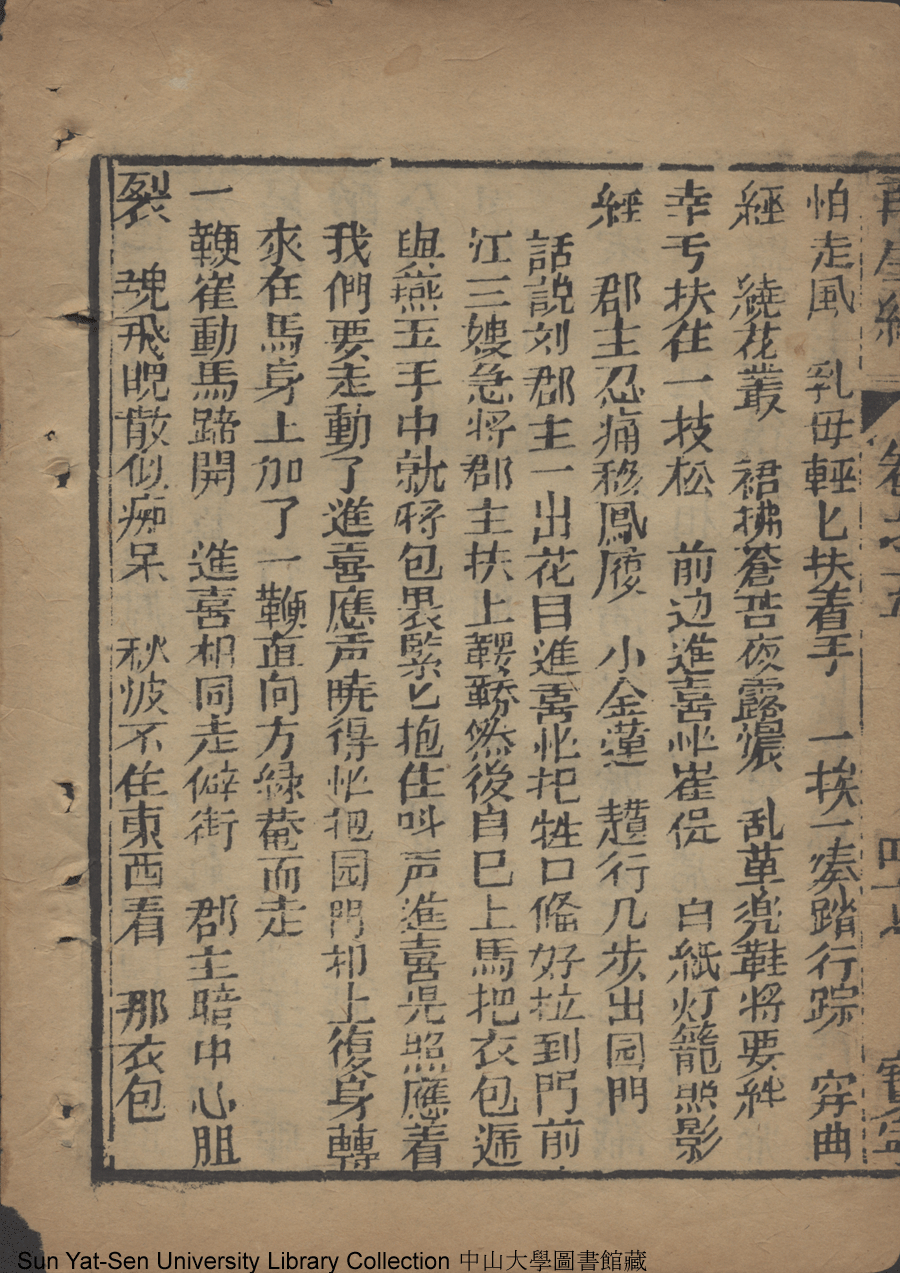 再生緣 卷之五
怕走風 乳母輕匕扶着手 一挨一凑踏行踪 穿曲
經 繞花叢 裙拂蒼苔夜露濃 乱草兠鞋將要絆
幸亏扶住一技松 前边進喜忙崔促 白紙灯籠照影
經 郡主忍痛移鳳履 小金蓮 趲行几步出园門
話說刘郡主一出花目進喜忙把牲口偹好拉到門前
江三嫂急將郡主扶上鞍轎然後自巳上馬把衣包遞
與燕玉手中就將包裹緊匕抱住呌声進喜児照應着
我們要走動了進喜應声曉得忙把园門扣上復身轉
來在馬身上加了一鞭直向方緑菴而走
一鞭崔動馬蹄開 進喜相同走僻街 郡主暗中心胆
裂 魂飛魄散似痴呆 秋波不住東西看 那衣包
Sun Yat-Sen University Library Collection 中山大學圖書館藏